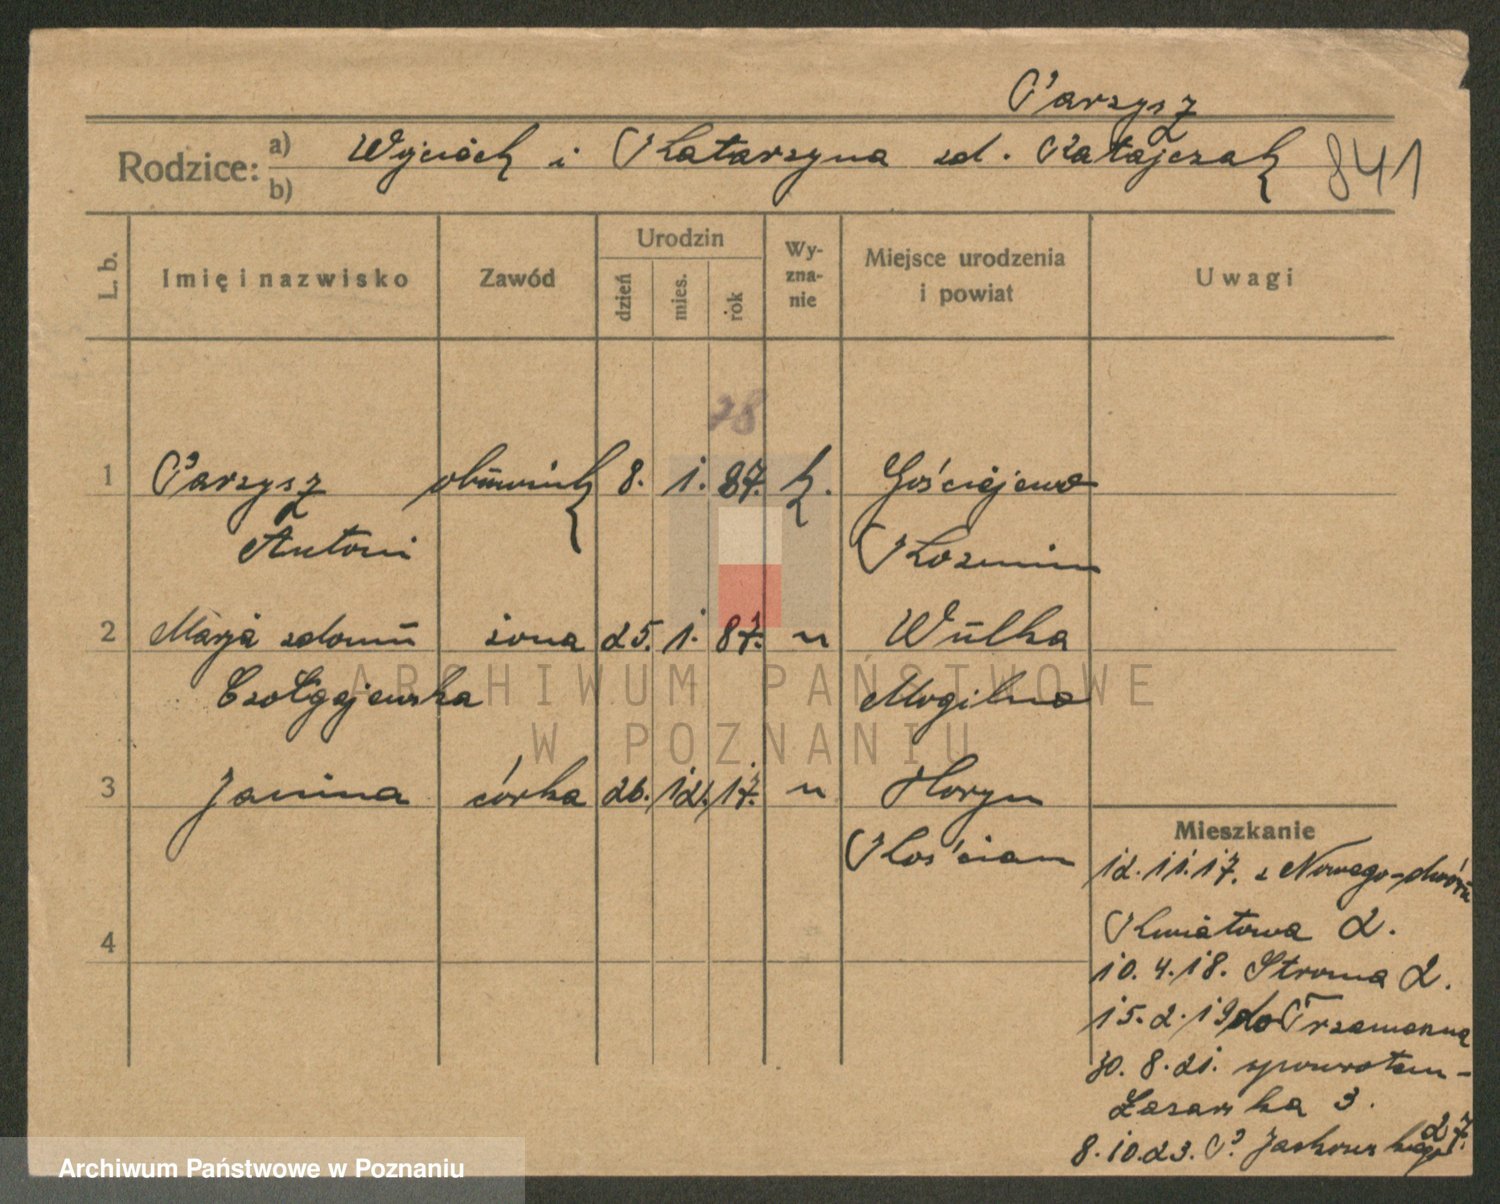 Parzysz
Rodzice: a) Wojciech i Katarzyna zd. Ratajczak 841
b)
L. b. Imię i nazwisko Zawód Urodzin dzień mies. rok Wyznanie Miejsce urodzenia i powiat Uwagi
78
1 Parzysz obuwnik 8. 1. 87. k. Gościejewo
Antoni Koźmin
2 Marja z domu żona 25. 1. 87. " Wulka
Czołgajewska Mogilno
3 Janina córka 26. 12. 17. " Horyń
Kościan
Mieszkanie
12.11.17. z Nowego-dworu
Kwiatowa 2.
4
10.4.18. Stroma 2.
15.2.19 do Trzemeszna
30.8.21. spowrotem-
Łazarska 3.
8.10.23. P. Jackowskiego 27.
ARCHIWUM PAŃSTWOWE
W POZNANIU
Archiwum Państwowe w Poznaniu